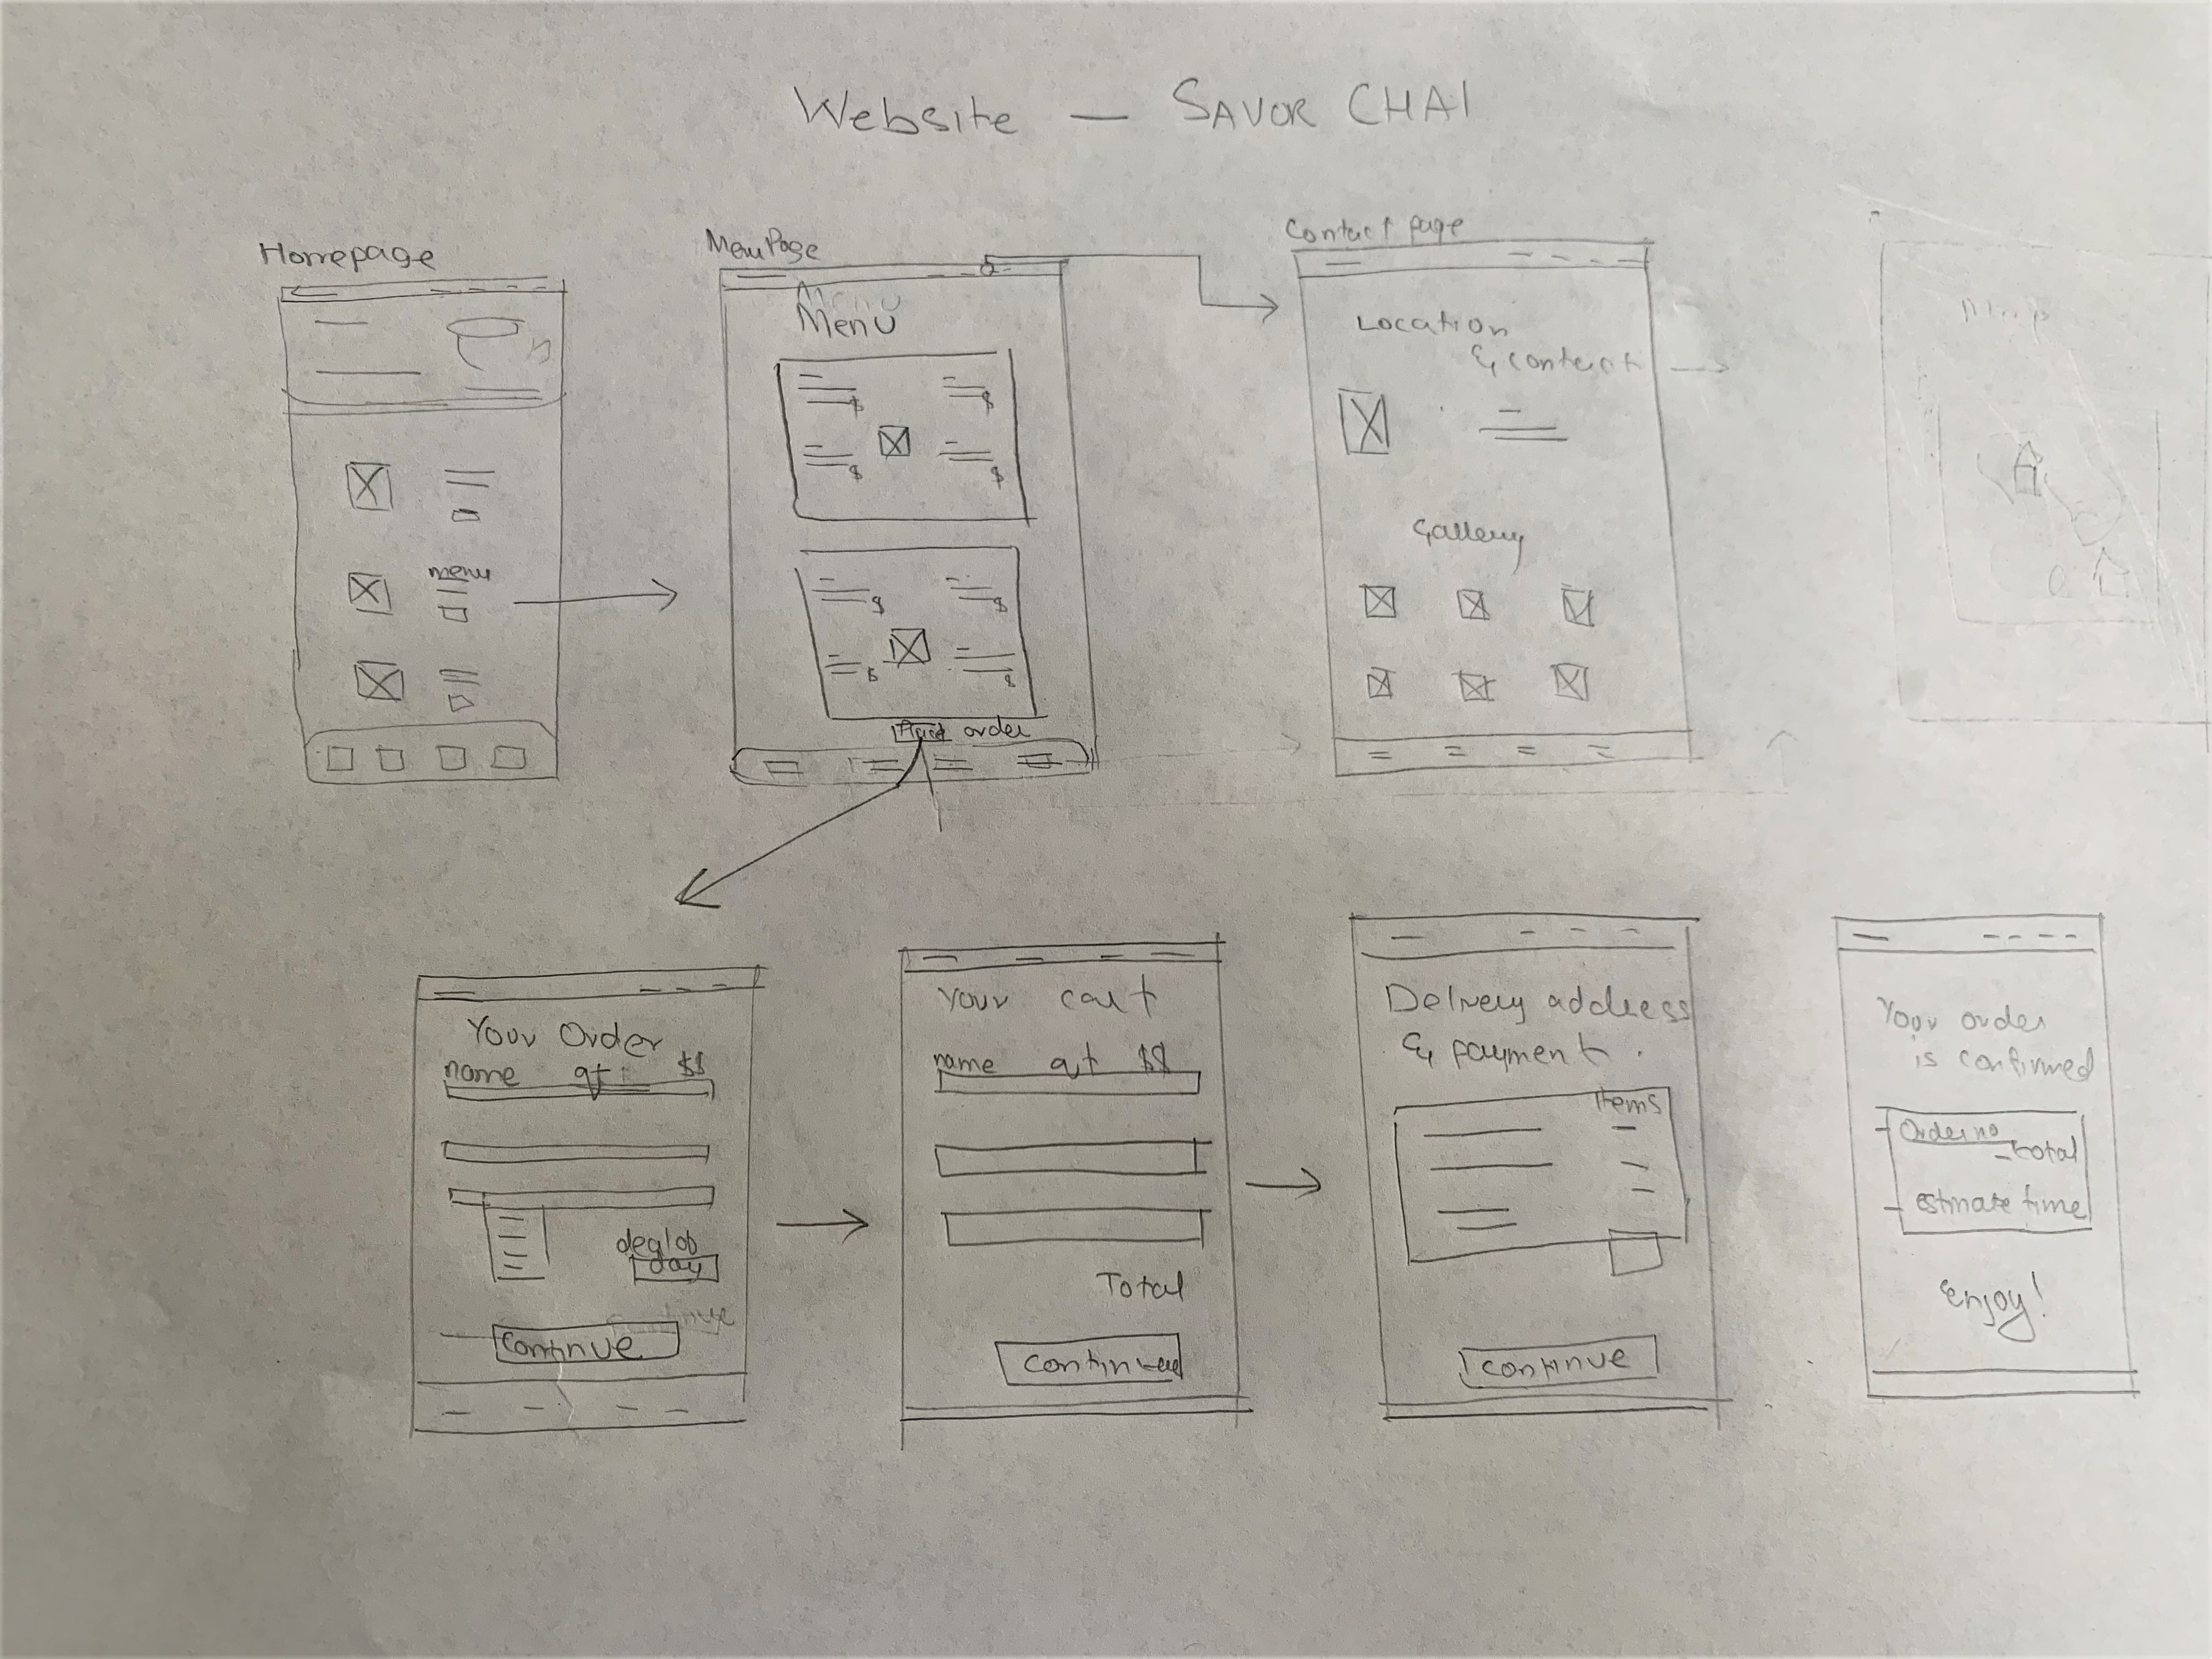 Website — SAVOR CHAI
Homepage
menu
Menu Page
Menu
$ $
$ $
$ $
$ $
order
Contact page
Location
& contact
Gallery
Map
Your Order
name qt $$
day
Continue
Your cart
name qt $$
Total
Continue
Delivery address
& payment.
Items
Continue
Your order
is confirmed
Order no
total
estimate time
Enjoy!